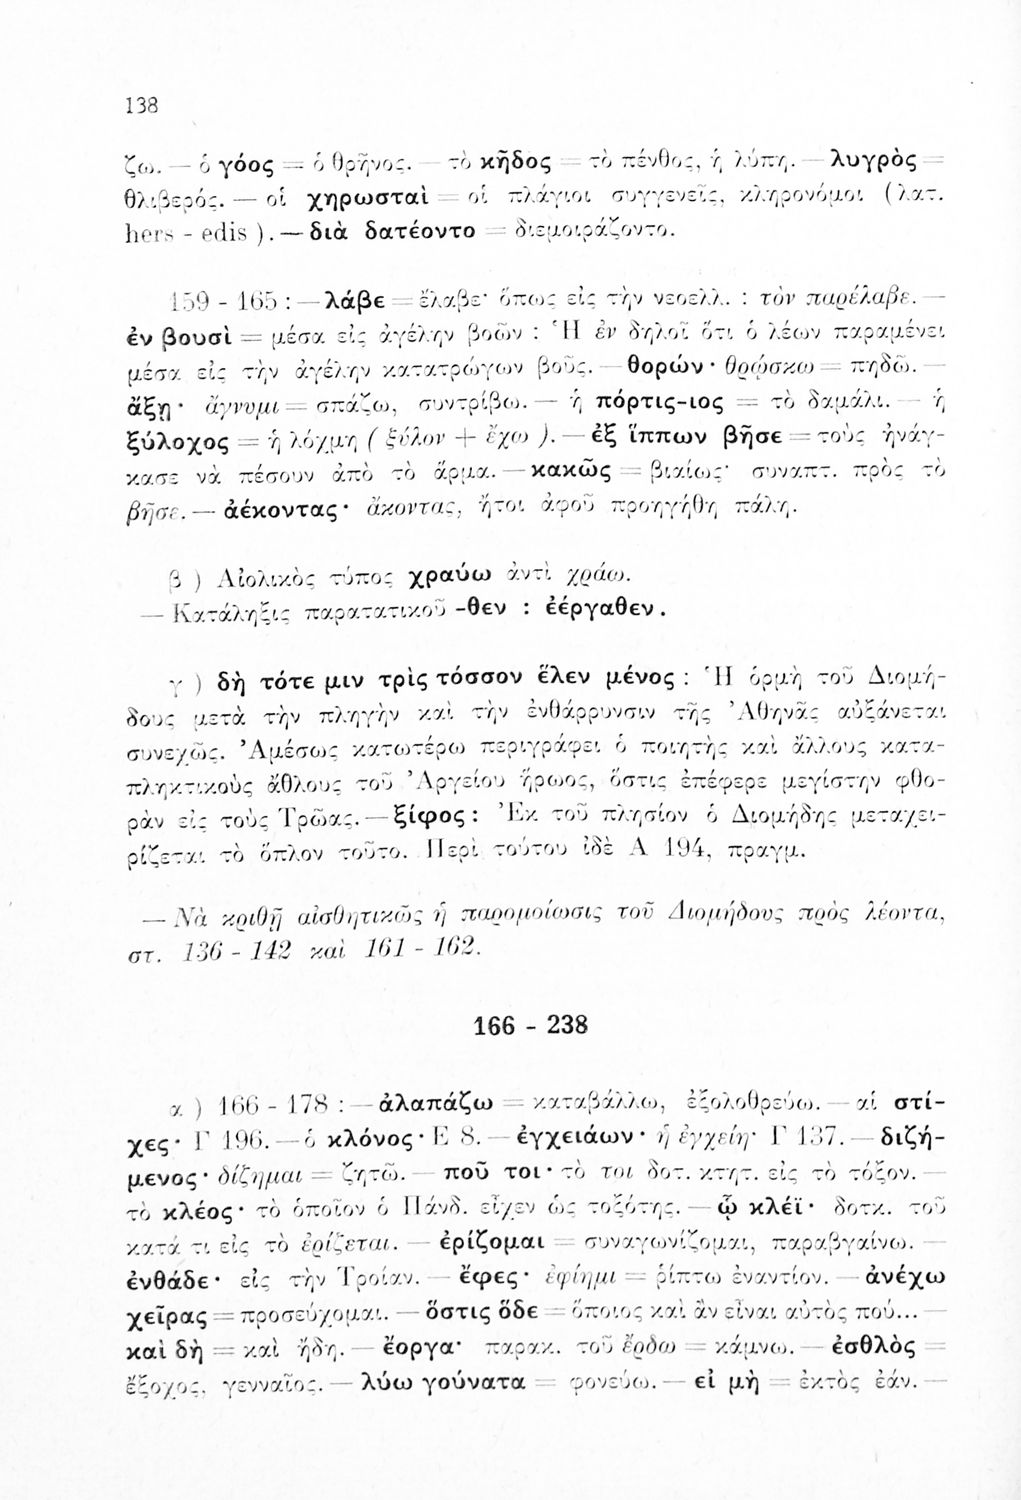 138
ζω. — ὁ γόος = ὁ θρῆνος. — τὸ κῆδος = τὸ πένθος, ἡ λύπη. — λυγρὸς =
θλιβερός. — οἱ χηρωσταὶ = οἱ πλάγιοι συγγενεῖς, κληρονόμοι (λατ.
hers - edis ). — διὰ δατέοντο = διεμοιράζοντο.
159 - 165 : — λάβε = ἔλαβε· ὅπως εἰς τὴν νεοελλ. : τὸν παρέλαβε. —
ἐν βουσὶ = μέσα εἰς ἀγέλην βοῶν : Ἡ ἐν δηλοῖ ὅτι ὁ λέων παραμένει
μέσα εἰς τὴν ἀγέλην κατατρώγων βοῦς. — θορών· θρῴσκω = πηδῶ. —
ἄξῃ· ἄγνυμι = σπάζω, συντρίβω. — ἡ πόρτις-ιος = τὸ δαμάλι. — ἡ
ξύλοχος = ἡ λόχμη ( ξύλον + ἔχω ). — ἐξ ἵππων βῆσε = τοὺς ἠνάγ-
κασε νὰ πέσουν ἀπὸ τὸ ἅρμα. — κακῶς = βιαίως· συναπτ. πρὸς τὸ
βῆσε. — ἀέκοντας· ἄκοντας, ἤτοι ἀφοῦ προηγήθη πάλη.
β ) Αἰολικὸς τύπος χραύω ἀντὶ χράω.
— Κατάληξις παρατατικοῦ -θεν : ἐέργαθεν.
γ ) δὴ τότε μιν τρὶς τόσσον ἕλεν μένος : Ἡ ὁρμὴ τοῦ Διομή-
δους μετὰ τὴν πληγὴν καὶ τὴν ἐνθάρρυνσιν τῆς Ἀθηνᾶς αὐξάνεται
συνεχῶς. Ἀμέσως κατωτέρω περιγράφει ὁ ποιητὴς καὶ ἄλλους κατα-
πληκτικοὺς ἄθλους τοῦ Ἀργείου ἥρωος, ὅστις ἐπέφερε μεγίστην φθο-
ρὰν εἰς τοὺς Τρῶας. — ξίφος : Ἐκ τοῦ πλησίον ὁ Διομήδης μεταχει-
ρίζεται τὸ ὅπλον τοῦτο. Περὶ τούτου ἰδὲ Α 194, πραγμ.
— Νὰ κριθῇ αἰσθητικῶς ἡ παρομοίωσις τοῦ Διομήδους πρὸς λέοντα,
στ. 136 - 142 καὶ 161 - 162.
166 - 238
α ) 166 - 178 : — ἀλαπάζω = καταβάλλω, ἐξολοθρεύω. — αἱ στί-
χες· Γ 196. — ὁ κλόνος· Ε 8. — ἐγχειάων· ἡ ἐγχείη· Γ 137. — διζή-
μενος· δίζημαι = ζητῶ. — ποῦ τοι· τὸ τοι δοτ. κτητ. εἰς τὸ τόξον. —
τὸ κλέος· τὸ ὁποῖον ὁ Πάνδ. εἶχεν ὡς τοξότης. — ᾧ κλέϊ· δοτκ. τοῦ
κατά τι εἰς τὸ ἐρίζεται. — ἐρίζομαι = συναγωνίζομαι, παραβγαίνω. —
ἐνθάδε· εἰς τὴν Τροίαν. — ἔφες· ἐφίημι = ρίπτω ἐναντίον. — ἀνέχω
χεῖρας = προσεύχομαι. — ὅστις ὅδε = ὅποιος καὶ ἂν εἶναι αὐτὸς πού... —
καὶ δὴ = καὶ ἤδη. — ἔοργα· παρακ. τοῦ ἔρδω = κάμνω. — ἐσθλὸς =
ἔξοχος, γενναῖος. — λύω γούνατα = φονεύω. — εἰ μὴ = ἐκτὸς ἐάν. —